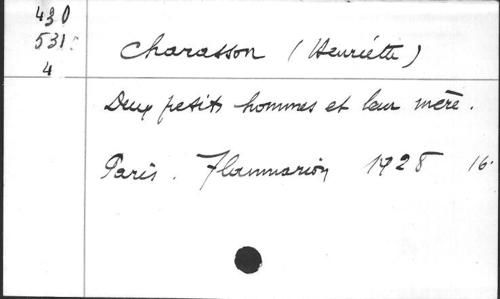 430
531
4
Charasson (Henriette)
Deux petits hommes et leur mère.
Paris. Flammarion 1928 16.